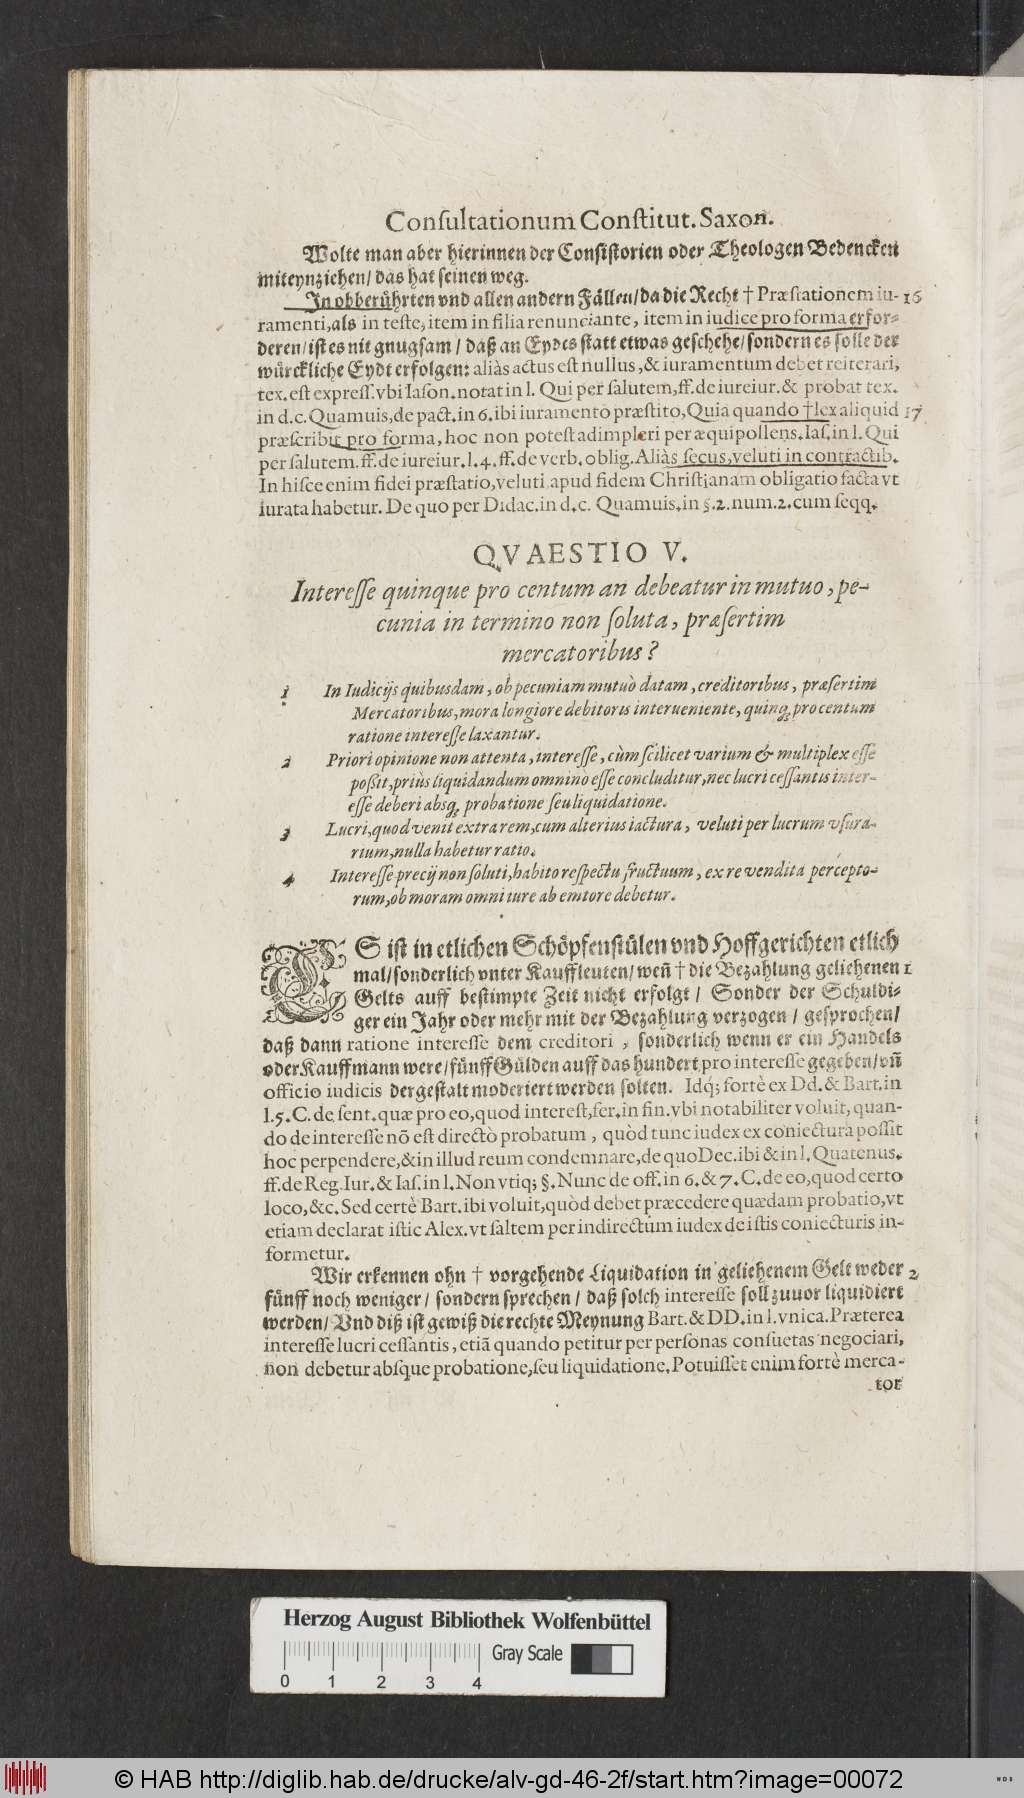 Conſultationum Conſtitut. Saxon.
Wolte man aber hierinnen der Conſiſtorien oder Theologen Bedencken
miteynziehen/ das hat ſeinen weg.
In obberührten vnd allen andern Fällen/ da die Recht † Præſtationem iu- 16
ramenti, als in teſte, item in filia renunciante, item in iudice pro forma erfor-
deren/ iſt es nit gnugſam/ daß an Eydes ſtatt etwas geſchehe/ ſondern es ſolle der
würckliche Eydt erfolgen: aliàs actus eſt nullus, & iuramentum debet reiterari,
tex. eſt expreſſ. vbi Iaſon. notat in l. Qui per ſalutem, ff. de iureiur. & probat tex.
in d. c. Quamuis, de pact. in 6. ibi iuramento præſtito, Quia quando † lex aliquid 17
præſcribit pro forma, hoc non poteſt adimpleri per æquipollens. Iaſ. in l. Qui
per ſalutem. ff. de iureiur. l. 4. ff. de verb. oblig. Aliàs ſecus, veluti in contractib.
In hiſce enim fidei præſtatio, veluti apud fidem Chriſtianam obligatio facta vt
iurata habetur. De quo per Didac. in d. c. Quamuis. in §. 2. num. 2. cum ſeqq.
QVAESTIO V.
Intereſſe quinque pro centum an debeatur in mutuo, pe-
cunia in termino non ſoluta, præſertim
mercatoribus?
1 In Iudicijs quibusdam, ob pecuniam mutuò datam, creditoribus, præſertim
Mercatoribus, mora longiore debitoris interueniente, quinq; pro centum
ratione intereſſe laxantur.
2 Priori opinione non attenta, intereſſe, cùm ſcilicet varium & multiplex eſſe
poßit, priùs liquidandum omnino eſſe concluditur, nec lucri ceſſantis inter-
eſſe deberi absq; probatione ſeu liquidatione.
3 Lucri, quod venit extra rem, cum alterius iactura, veluti per lucrum vſura-
rium, nulla habetur ratio.
4 Intereſſe precij non ſoluti, habito reſpectu fructuum, ex re vendita percepto-
rum, ob moram omni iure ab emtore debetur.
ES iſt in etlichen Schöpfenſtülen vnd Hoffgerichten etlich
mal/ ſonderlich vnter Kauffleuten/ weñ † die Bezahlung geliehenen 1
Gelts auff beſtimpte Zeit nicht erfolgt/ Sonder der Schuldi-
ger ein Jahr oder mehr mit der Bezahlung verzogen/ geſprochen/
daß dann ratione intereſſe dem creditori, ſonderlich wenn er ein Handels
oder Kauffmann were/ fünff Gülden auff das hundert pro intereſſe gegeben/ vñ
officio iudicis dergeſtalt moderiert werden ſolten. Idq́; fortè ex Dd. & Bart. in
l. 5. C. de ſent. quæ pro eo, quod intereſt, fer. in fin. vbi notabiliter voluit, quan-
do de intereſſe nō eſt directò probatum, quòd tunc iudex ex coniectura poſſit
hoc perpendere, & in illud reum condemnare, de quo Dec. ibi & in l. Quatenus.
ff. de Reg. Iur. & Iaſ. in l. Non vtiq; §. Nunc de off. in 6. & 7. C. de eo, quod certo
loco, &c. Sed certè Bart. ibi voluit, quòd debet præcedere quædam probatio, vt
etiam declarat iſtic Alex. vt ſaltem per indirectum iudex de iſtis coniecturis in-
formetur.
Wir erkennen ohn † vorgehende Liquidation in geliehenem Gelt weder 2
fünff noch weniger/ ſondern ſprechen/ daß ſolch intereſſe ſoll zuuor liquidiert
werden/ Vnd diß iſt gewiß die rechte Meynung Bart. & DD. in l. vnica. Præterea
intereſſe lucri ceſſantis, etiā quando petitur per perſonas conſuetas negociari,
non debetur abſque probatione, ſeu liquidatione. Potuiſſet enim fortè merca-
tor
Herzog August Bibliothek Wolfenbüttel
Gray Scale
0 1 2 3 4
© HAB http://diglib.hab.de/drucke/alv-gd-46-2f/start.htm?image=00072